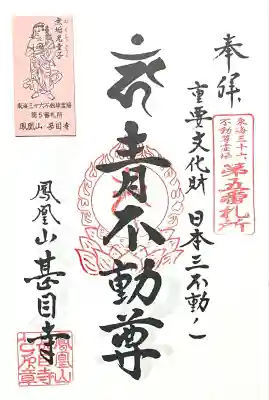 奉拝
重要文化財 日本三不動ノ一
東海三十六
不動尊霊場
第五番札所
青不動尊
鳳凰山 甚目寺
無垢光童子
東海三十六不動尊霊場
第5番札所
鳳凰山・甚目寺